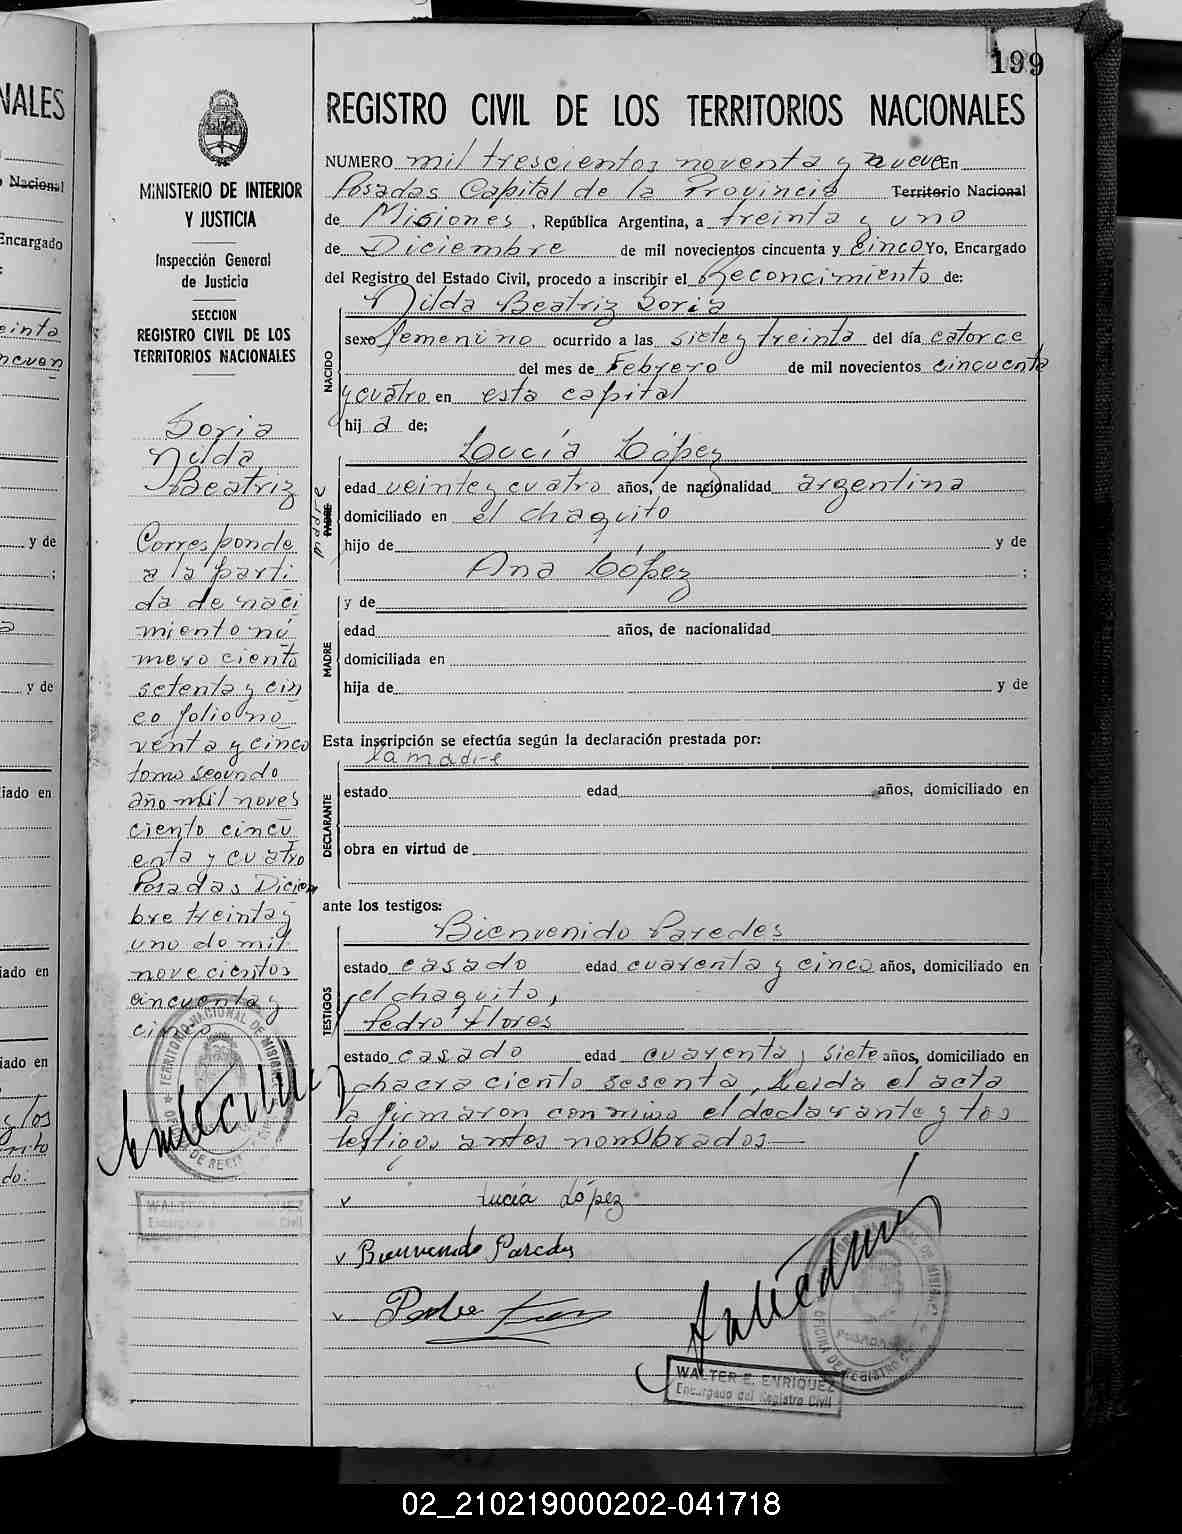 199
NALES
Nacional
Encargado
y de
y de
iado en
iado en
iado en
MINISTERIO DE INTERIOR
Y JUSTICIA
Inspección General
de Justicia
SECCION
REGISTRO CIVIL DE LOS
TERRITORIOS NACIONALES
Soria
Nilda
Beatriz
Corresponde
a la parti
da de naci
miento nú
mero ciento
setenta y cin
co folio no
venta y cinco
tomo segundo
año mil noves
ciento cincu
enta y cuatro
Posadas Diciem
bre treinta y
uno de mil
novecientos
cincuenta y
cinco
REGISTRO CIVIL DE LOS TERRITORIOS NACIONALES
NUMERO mil trescientos noventa y nueve En
Posadas Capital de la Provincia Territorio Nacional
de Misiones, República Argentina, a treinta y uno
de Diciembre de mil novecientos cincuenta y cinco Yo, Encargado
del Registro del Estado Civil, procedo a inscribir el Reconcimiento de:
Nilda Beatriz Soria
NACIDO
sexo femenino ocurrido a las siete y treinta del día catorce
del mes de Febrero de mil novecientos cincuenta
y cuatro en esta capital
hij a de;
Lucía López
madre PADRE
edad veinte y cuatro años, de nacionalidad argentina
domiciliado en el chaquito
hijo de y de
Ana López ;
y de
MADRE
edad años, de nacionalidad
domiciliada en
hija de y de
Esta inscripción se efectúa según la declaración prestada por:
la madre
DECLARANTE
estado edad años, domiciliado en
obra en virtud de
ante los testigos:
Bienvenido Paredes
TESTIGOS
estado casado edad cuarenta y cinco años, domiciliado en
el chaquito,
Pedro Flores
estado casado edad cuarenta y siete años, domiciliado en
chacra ciento sesenta. Leida el acta
la firmaron conmigo el declarante y los
testigos antes nombrados
Lucía López
Bienvenido Paredes
WALTER E. ENRIQUEZ
Encargado del Registro Civil
02_210219000202-041718